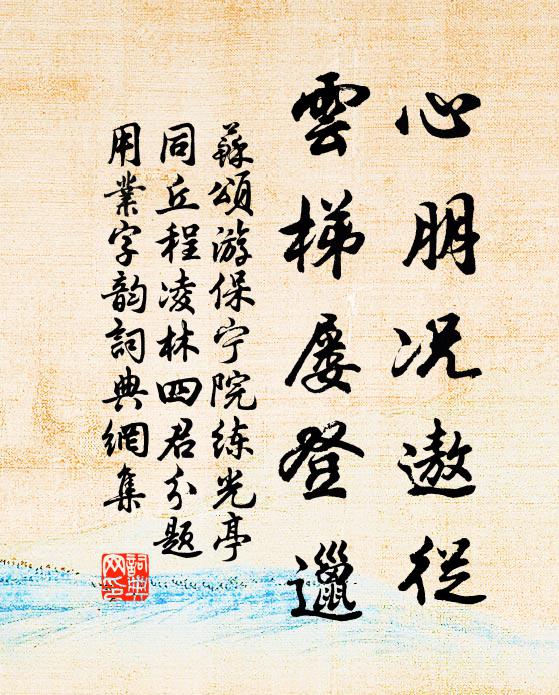 心朋况遨從
雲梯屡登邋
蘇頌游保宁院练光亭
同丘程凌林四君分题
用業字韵詞典網集
詞典